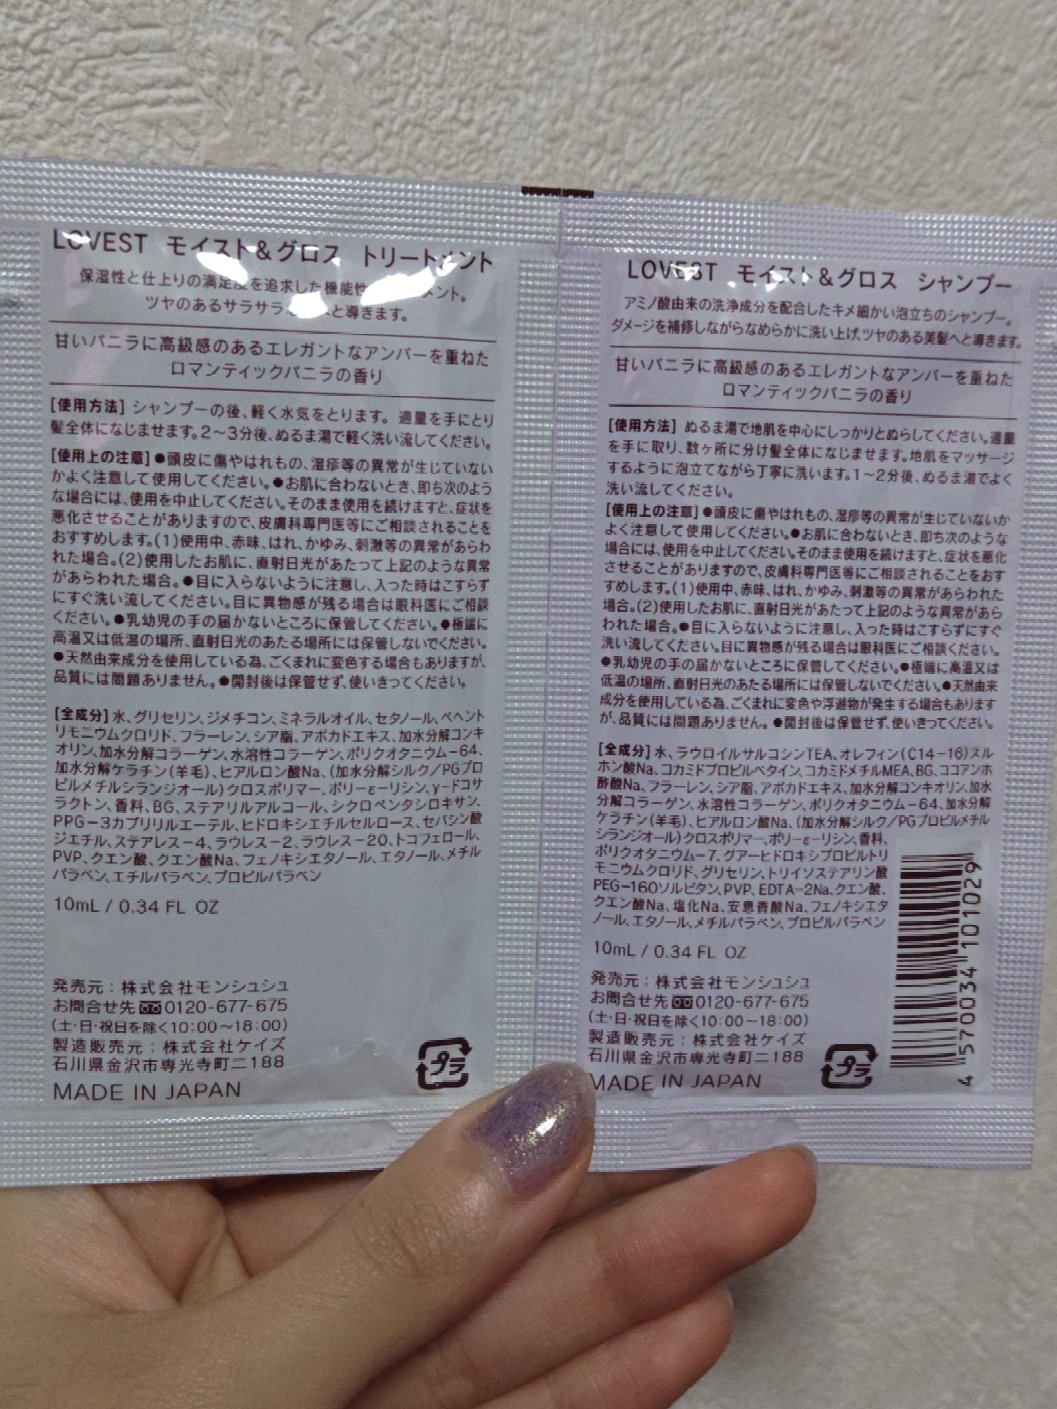 LOVEST モイスト&グロス トリートメント
保湿性と仕上りの満足度を追求した機能性 メント。
ツヤのあるサラサラ と導きます。
甘いバニラに高級感のあるエレガントなアンバーを重ねた
ロマンティックバニラの香り
[使用方法] シャンプーの後、軽く水気をとります。 適量を手にとり
髪全体になじませます。2〜3分後、ぬるま湯で軽く洗い流してください。
[使用上の注意] ●頭皮に傷やはれもの、湿疹等の異常が生じていない
かよく注意して使用してください。●お肌に合わないとき、即ち次のよう
な場合には、使用を中止してください。そのまま使用を続けますと、症状を
悪化させることがありますので、皮膚科専門医等にご相談されることを
おすすめします。(1)使用中、赤味、はれ、かゆみ、刺激等の異常があらわ
れた場合。(2)使用したお肌に、直射日光があたって上記のような異常
があらわれた場合。●目に入らないように注意し、入った時はこすらず
にすぐ洗い流してください。目に異物感が残る場合は眼科医にご相談
ください。●乳幼児の手の届かないところに保管してください。●極端に
高温又は低温の場所、直射日光のあたる場所には保管しないでください。
●天然由来成分を使用している為、ごくまれに変色する場合もありますが、
品質には問題ありません。●開封後は保管せず、使いきってください。
[全成分] 水、グリセリン、ジメチコン、ミネラルオイル、セタノール、ベヘント
リモニウムクロリド、フラーレン、シア脂、アボカドエキス、加水分解コンキ
オリン、加水分解コラーゲン、水溶性コラーゲン、ポリクオタニウム-64、
加水分解ケラチン(羊毛)、ヒアルロン酸Na、(加水分解シルク/PGプロ
ピルメチルシランジオール)クロスポリマー、ポリ-ε-リシン、γ-ドコサ
ラクトン、香料、BG、ステアリルアルコール、シクロペンタシロキサン、
PPG-3カプリリルエーテル、ヒドロキシエチルセルロース、セバシン酸
ジエチル、ステアレス-4、ラウレス-2、ラウレス-20、トコフェロール、
PVP、クエン酸、クエン酸Na、フェノキシエタノール、エタノール、メチル
パラベン、エチルパラベン、プロピルパラベン
10mL / 0.34 FL OZ
発売元:株式会社モンシュシュ
お問合せ先 0120-677-675
(土・日・祝日を除く10:00〜18:00)
製造販売元:株式会社ケイズ
石川県金沢市専光寺町ニ188
MADE IN JAPAN
プラ
LOVEST モイスト&グロス シャンプー
アミノ酸由来の洗浄成分を配合したキメ細かい泡立ちのシャンプー。
ダメージを補修しながらなめらかに洗い上げ、ツヤのある美髪へと導きます。
甘いバニラに高級感のあるエレガントなアンバーを重ねた
ロマンティックバニラの香り
[使用方法] ぬるま湯で地肌を中心にしっかりとぬらしてください。適量
を手に取り、数ヶ所に分け髪全体になじませます。地肌をマッサージ
するように泡立てながら丁寧に洗います。1〜2分後、ぬるま湯でよく
洗い流してください。
[使用上の注意] ●頭皮に傷やはれもの、湿疹等の異常が生じていないか
よく注意して使用してください。●お肌に合わないとき、即ち次のような
場合には、使用を中止してください。そのまま使用を続けますと、症状を悪化
させることがありますので、皮膚科専門医等にご相談されることをおす
すめします。(1)使用中、赤味、はれ、かゆみ、刺激等の異常があらわれた
場合。(2)使用したお肌に、直射日光があたって上記のような異常があら
われた場合。●目に入らないように注意し、入った時はこすらずにすぐ
洗い流してください。目に異物感が残る場合は眼科医にご相談ください。
●乳幼児の手の届かないところに保管してください。●極端に高温又は
低温の場所、直射日光のあたる場所には保管しないでください。●天然由来
成分を使用している為、ごくまれに変色や浮遊物が発生する場合もあります
が、品質には問題ありません。●開封後は保管せず、使いきってください。
[全成分] 水、ラウロイルサルコシンTEA、オレフィン(C14-16)スル
ホン酸Na、コカミドプロピルベタイン、コカミドメチルMEA、BG、ココアンホ
酢酸Na、フラーレン、シア脂、アボカドエキス、加水分解コンキオリン、加水
分解コラーゲン、水溶性コラーゲン、ポリクオタニウム-64、加水分解
ケラチン(羊毛)、ヒアルロン酸Na、(加水分解シルク/PGプロピルメチル
シランジオール)クロスポリマー、ポリ-ε-リシン、香料、
ポリクオタニウム-7、グアーヒドロキシプロピルトリ
モニウムクロリド、グリセリン、トリイソステアリン酸
PEG-160ソルビタン、PVP、EDTA-2Na、クエン酸、
クエン酸Na、塩化Na、安息香酸Na、フェノキシエタ
ノール、エタノール、メチルパラベン、プロピルパラベン
10mL / 0.34 FL OZ
発売元:株式会社モンシュシュ
お問合せ先 0120-677-675
(土・日・祝日を除く10:00〜18:00)
製造販売元:株式会社ケイズ
石川県金沢市専光寺町ニ188
MADE IN JAPAN
プラ
4 570034 101029